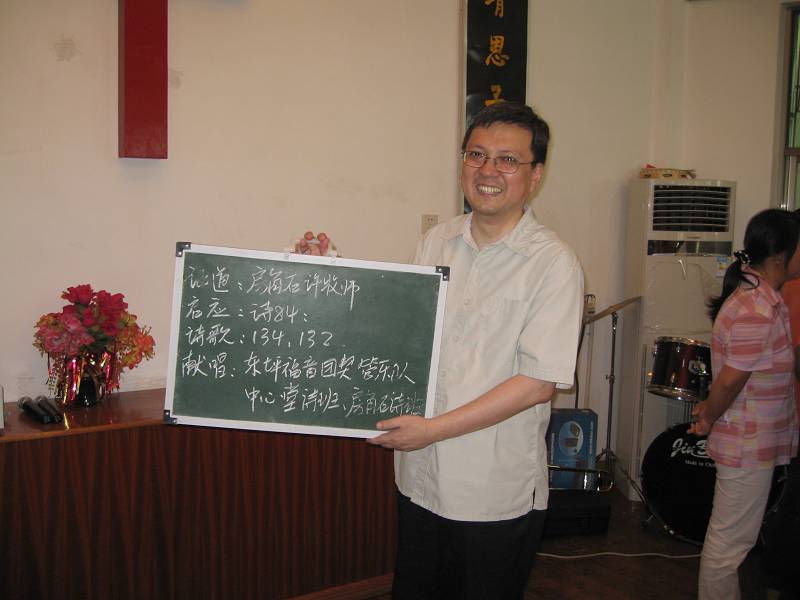 有恩子
证道：房角石许牧师
启应：诗84：
诗歌：134，132
献唱：东坪福音团契 管乐队
中心堂诗班、房角石诗班
Jin B
Made in Chi